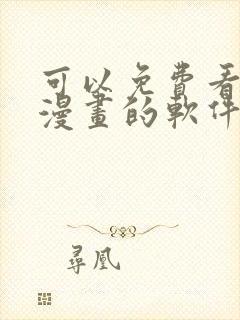 可以免費看
漫畫的軟件
尋凰